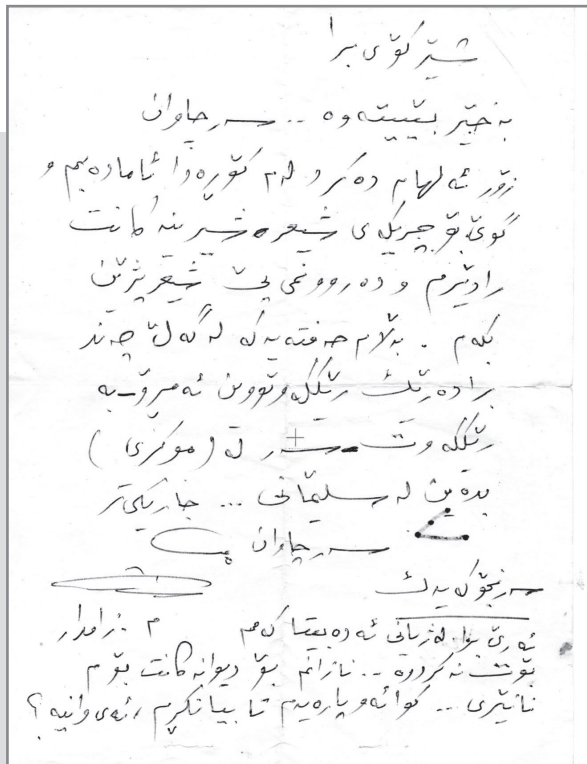 شێرکۆی برا
بەخێر بێیتەوە .. سەرچاوان
زۆر ئەلهام دەکرد لەم کۆڕەدا ئامادەبم و
گوێ بۆ چریکەی شیعرە شیرینەکانت
رادێرم و دەروونمی پێ شیعر پژێن
بکەم . بەڵام حەفتەیەکە لەگەڵ چەند
برادەرێک رێککەوتووین ئەمڕۆ بە
رێککەوت سەر لە (موکری)
بدەین لە سلێمانی ... جارێکی تر
سەرچاوان
سەرنجۆکەیەک
م . زامدار
ئەرێ بۆ لە ژیانی ئەدەبیتا کەم
بۆت نەکردوە .. نازانم بۆ دیوانەکانت بۆم
نانێری .. کوا ئەو پارەیەم تا بیانکڕم ، ئەی وانیە؟